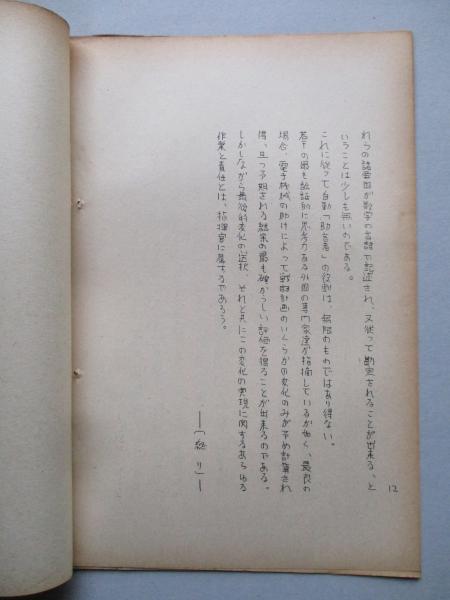 れらの諸要因が数字の言語で記述され、又従って勘定されることが出来る、と
いうことは少しも無いのである。
これに従って自動「助言者」の役割は、無限のものではあり得ない。
若干の最も論証的に思考力ある外国の専門家達が指摘しているが如く、最良の
場合、電子機械の助けによって戦闘計画のいくらかの変化のみが予め計算され
得、且つ予想される結果の最も確からしい評価を得ることが出来るのである。
しかしながら最後的変化の選択、それと共にこの変化の実現に関するあらゆる
作業と責任とは、指揮官に属するであろう。
―「終り」―
12